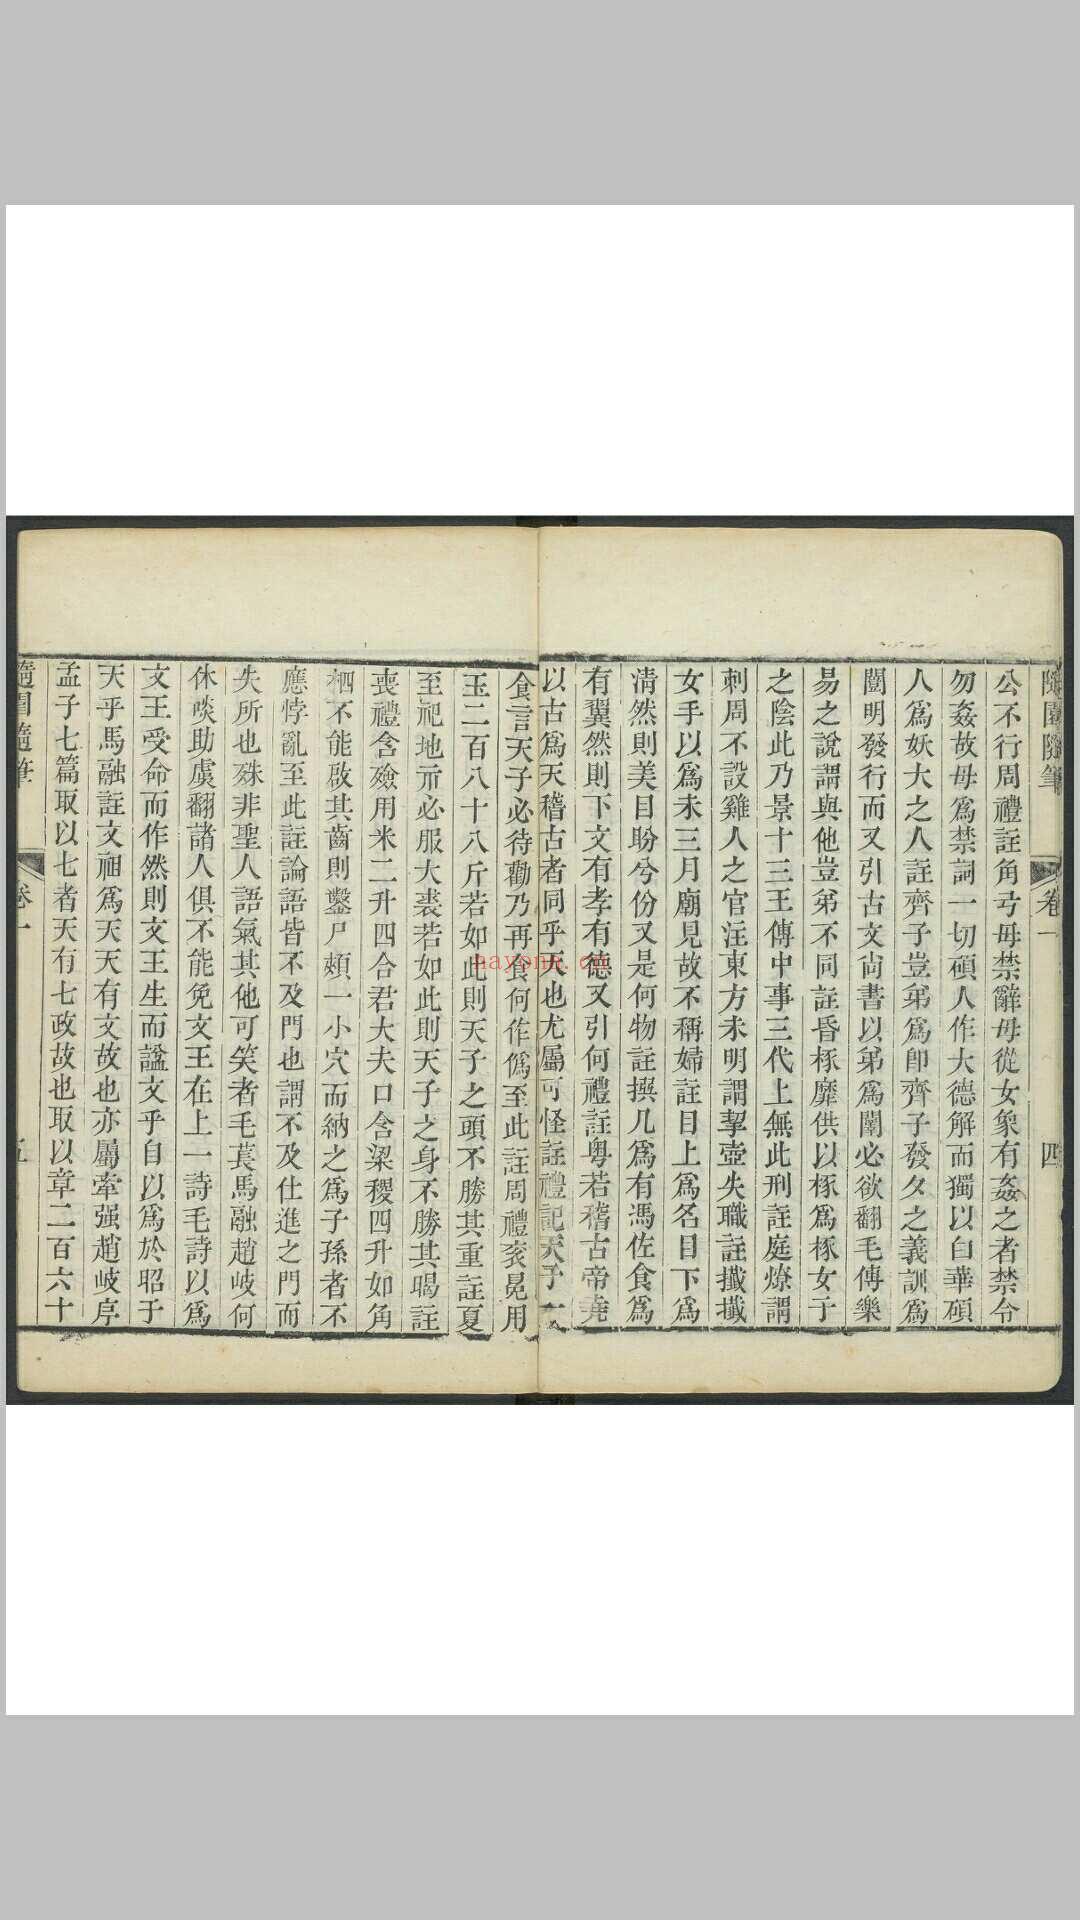 隨園隨筆
卷一
四
公不行周禮註角弓毋禁辭毋從女象有姦之者禁令
勿姦故毋爲禁詞一切碩人作大德解而獨以白華碩
人爲妖大之人註齊子豈弟爲卽齊子發夕之義訓爲
闓明發行而又引古文尚書以弟爲闓必欲翻毛傳樂
易之說謂與他豈弟不同註昏椓靡供以椓爲椓女于
之陰此乃景十三王傳中事三代上無此刑註庭燎謂
刺周不設雞人之官注東方未明謂挈壺失職註摻摻
女手以爲未三月廟見故不稱婦註目上爲名目下爲
淸然則美目盼兮份又是何物註撰几爲有馮佐食爲
有翼然則下文有孝有德又引何禮註粵若稽古帝堯
以古爲天稽古者同乎天也尤屬可怪註禮記天子一
食言天子必待勸乃再食何作僞至此註周禮衮冕用
玉二百八十八斤若如此則天子之頭不勝其重註夏
至祀地亦必服大裘若如此則天子之身不勝其暍註
喪禮含殮用米二升四合君大夫口含粱稷四升如角
柶不能啟其齒則鑿尸頰一小穴而納之爲子孫者不
應悖亂至此註論語皆不及門也謂不及仕進之門而
失所也殊非聖人語氣其他可笑者毛萇馬融趙岐何
休啖助虞翻諸人俱不能免文王在上一詩毛詩以爲
文王受命而作然則文王生而諡文乎自以爲於昭于
天乎馬融註文祖爲天天有文故也亦屬牽强趙岐序
孟子七篇取以七者天有七政故也取以章二百六十
隨園隨筆
卷一
五
nayona.cn